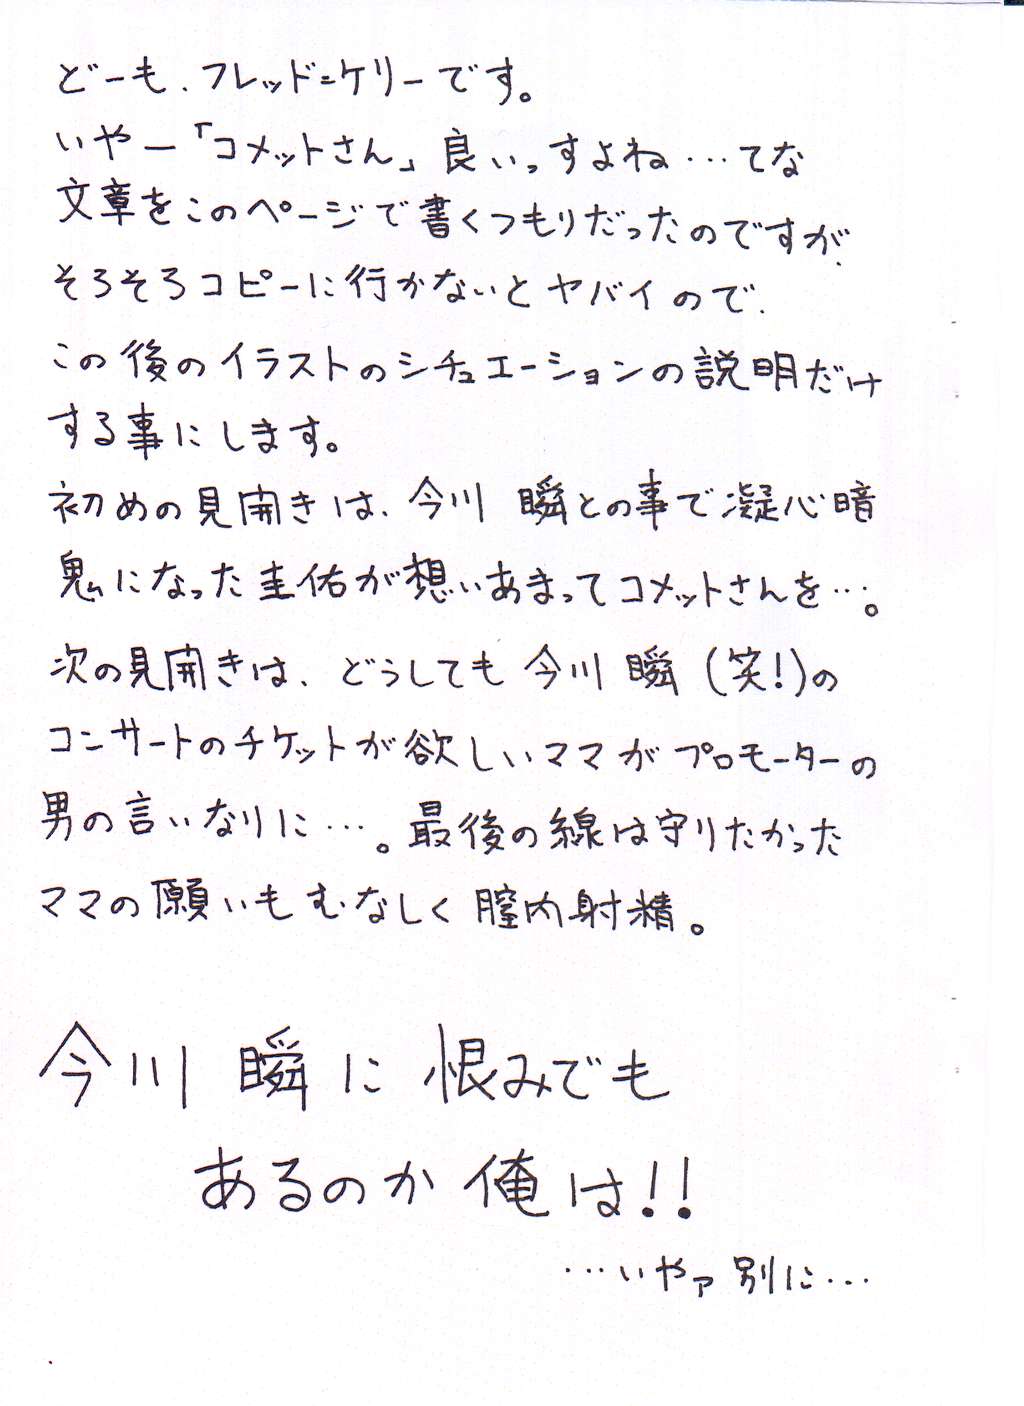 どーも、フレッド=ケリーです。
いやー「コメットさん」良いっすよね…てな
文章をこのページで書くつもりだったのですが、
そろそろコピーに行かないとヤバイので、
この後のイラストのシチュエーションの説明だけ
する事にします。
初めの見開きは、今川 瞬との事で凝心暗
鬼になった圭佑が想いあまってコメットさんを…。
次の見開きは、どうしても今川 瞬(笑!)の
コンサートのチケットが欲しいママがプロモーターの
男の言いなりに…。最後の線は守りたかった
ママの願いもむなしく膣内射精。
今川 瞬に恨みでも
あるのか俺は!!
…いやァ別に…